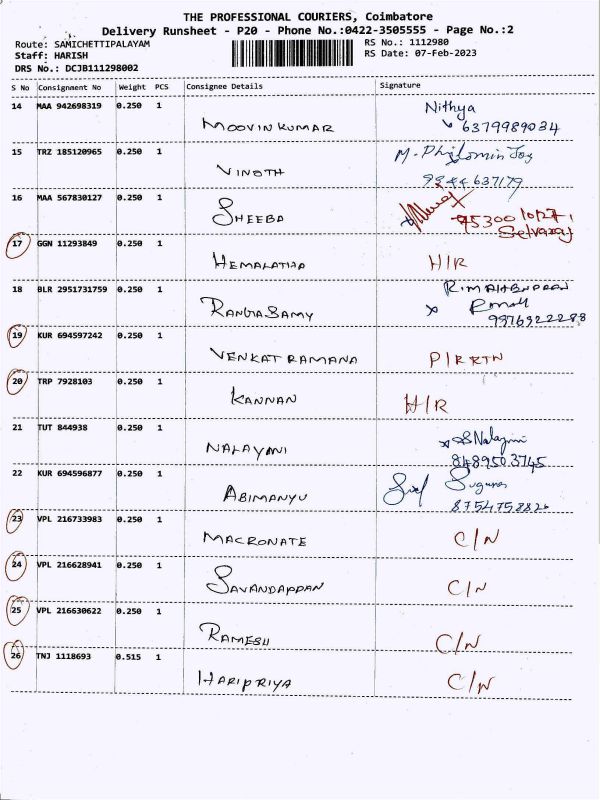 THE PROFESSIONAL COURIERS, Coimbatore
Delivery Runsheet - P20 - Phone No.:0422-3505555 - Page No.:2
Route: SAMICHETTIPALAYAM
Staff: HARISH
DRS No.: DCJB111298002
RS No.: 1112980
RS Date: 07-Feb-2023
S No Consignment No Weight PCS Consignee Details Signature
14 MAA 942698319 0.250 1 MOOVINKUMAR Nithya
6379989034
15 TRZ 185120965 0.250 1 VINOTH M. Philomin Joy
9344637179
16 MAA 567830127 0.250 1 SHEEBA
Selvaraj
17 GGN 11293849 0.250 1 HEMALATHA H/R
18 BLR 2951731759 0.250 1 RANGASAMY
9976922288
19 KUR 694597242 0.250 1 VENKAT RAMANA P/R RTN
20 TRP 7928103 0.250 1 KANNAN H/R
21 TUT 844938 0.250 1 NALAYINI S Nalayini
8489503745
22 KUR 694596877 0.250 1 ABIMANYU Suguna
23 VPL 216733983 0.250 1 MACRONATE C/N
24 VPL 216628941 0.250 1 SAVANDAPPAN C/N
25 VPL 216630622 0.250 1 RAMESH C/N
26 TNJ 1118693 0.515 1 HARIPRIYA C/N